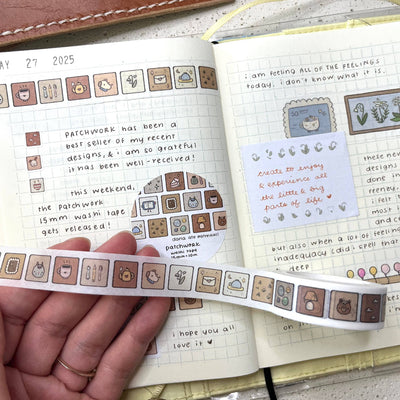 AY 27 2025
PATCHWORK has been a
best seller of my recent
designs, & i am so grateful
it has been well-received!
this weekend,
the patchwork
15mm washi tape
gets released!
patchwork
washi tape
15mm x 10m
i hope you all
love it
i am feeling ALL OF THE FEELINGS
today. i don't know what it is.
create to enjoy
& experience all
the little & big
parts of life
these new
designs
done in
feel
most
and c
but also when a lot of feelin
inadequacy i did spell that
deep
on